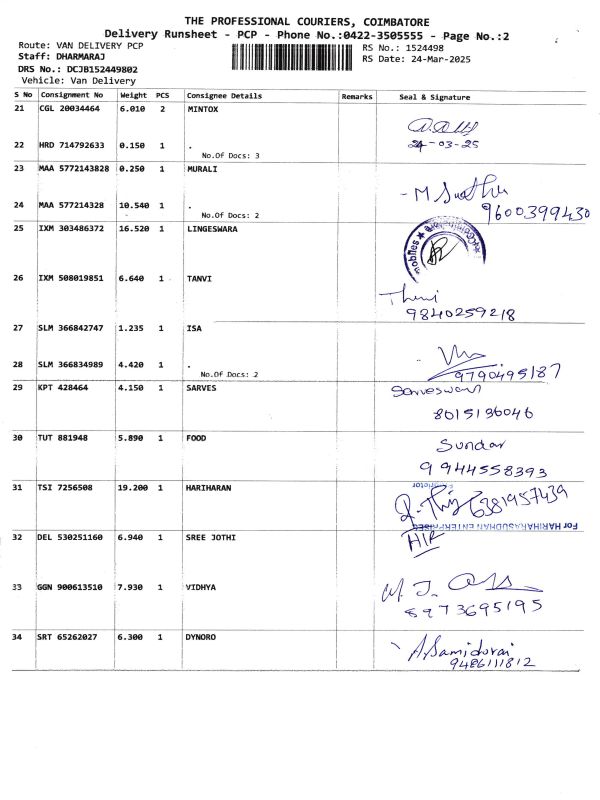 THE PROFESSIONAL COURIERS, COIMBATORE
Delivery Runsheet - PCP - Phone No.:0422-3505555 - Page No.:2
Route: VAN DELIVERY PCP RS No.: 1524498
Staff: DHARMARAJ RS Date: 24-Mar-2025
DRS No.: DCJB152449802
Vehicle: Van Delivery
S No Consignment No Weight PCS Consignee Details Remarks Seal & Signature
21 CGL 20034464 6.010 2 MINTOX
22 HRD 714792633 0.150 1 . 24-03-25
No.Of Docs: 3
23 MAA 5772143828 0.250 1 MURALI
24 MAA 577214328 10.540 1 . 9600399430
No.Of Docs: 2
25 IXM 303486372 16.520 1 LINGESWARA
26 IXM 508019851 6.640 1 TANVI
9840259218
27 SLM 366842747 1.235 1 ISA
28 SLM 366834989 4.420 1 . 9790495187
No.Of Docs: 2
29 KPT 428464 4.150 1 SARVES Sarveswari
8015136046
30 TUT 881948 5.890 1 FOOD Sundar
9944558393
31 TSI 7256508 19.200 1 HARIHARAN 6381957439
For HARIHARASUDHAN ENTERPRISES
32 DEL 530251160 6.940 1 SREE JOTHI
33 GGN 900613510 7.930 1 VIDHYA
8973695195
34 SRT 65262027 6.300 1 DYNORO A.Samidurai
9486111812